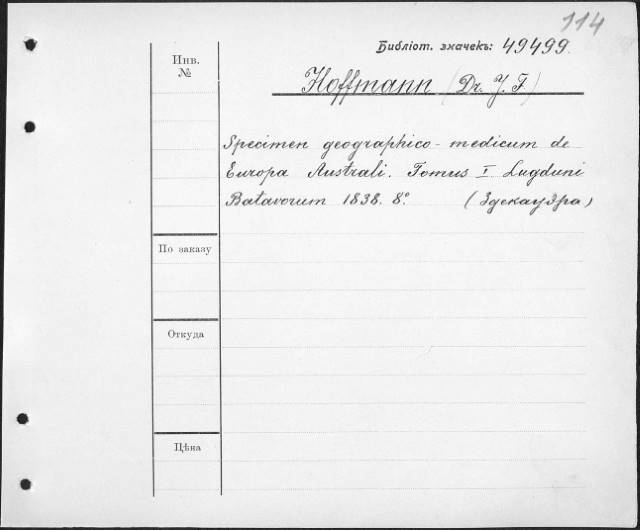 114
Библіот. значекъ: 49499.
Инв.
№
Hoffmann (Dr. J. F.)
Specimen geographico-medicum de
Europa Australi. Tomus I Lugduni
Batavorum 1838. 8°. (Здекауэра)
По заказу
Откуда
Цѣна